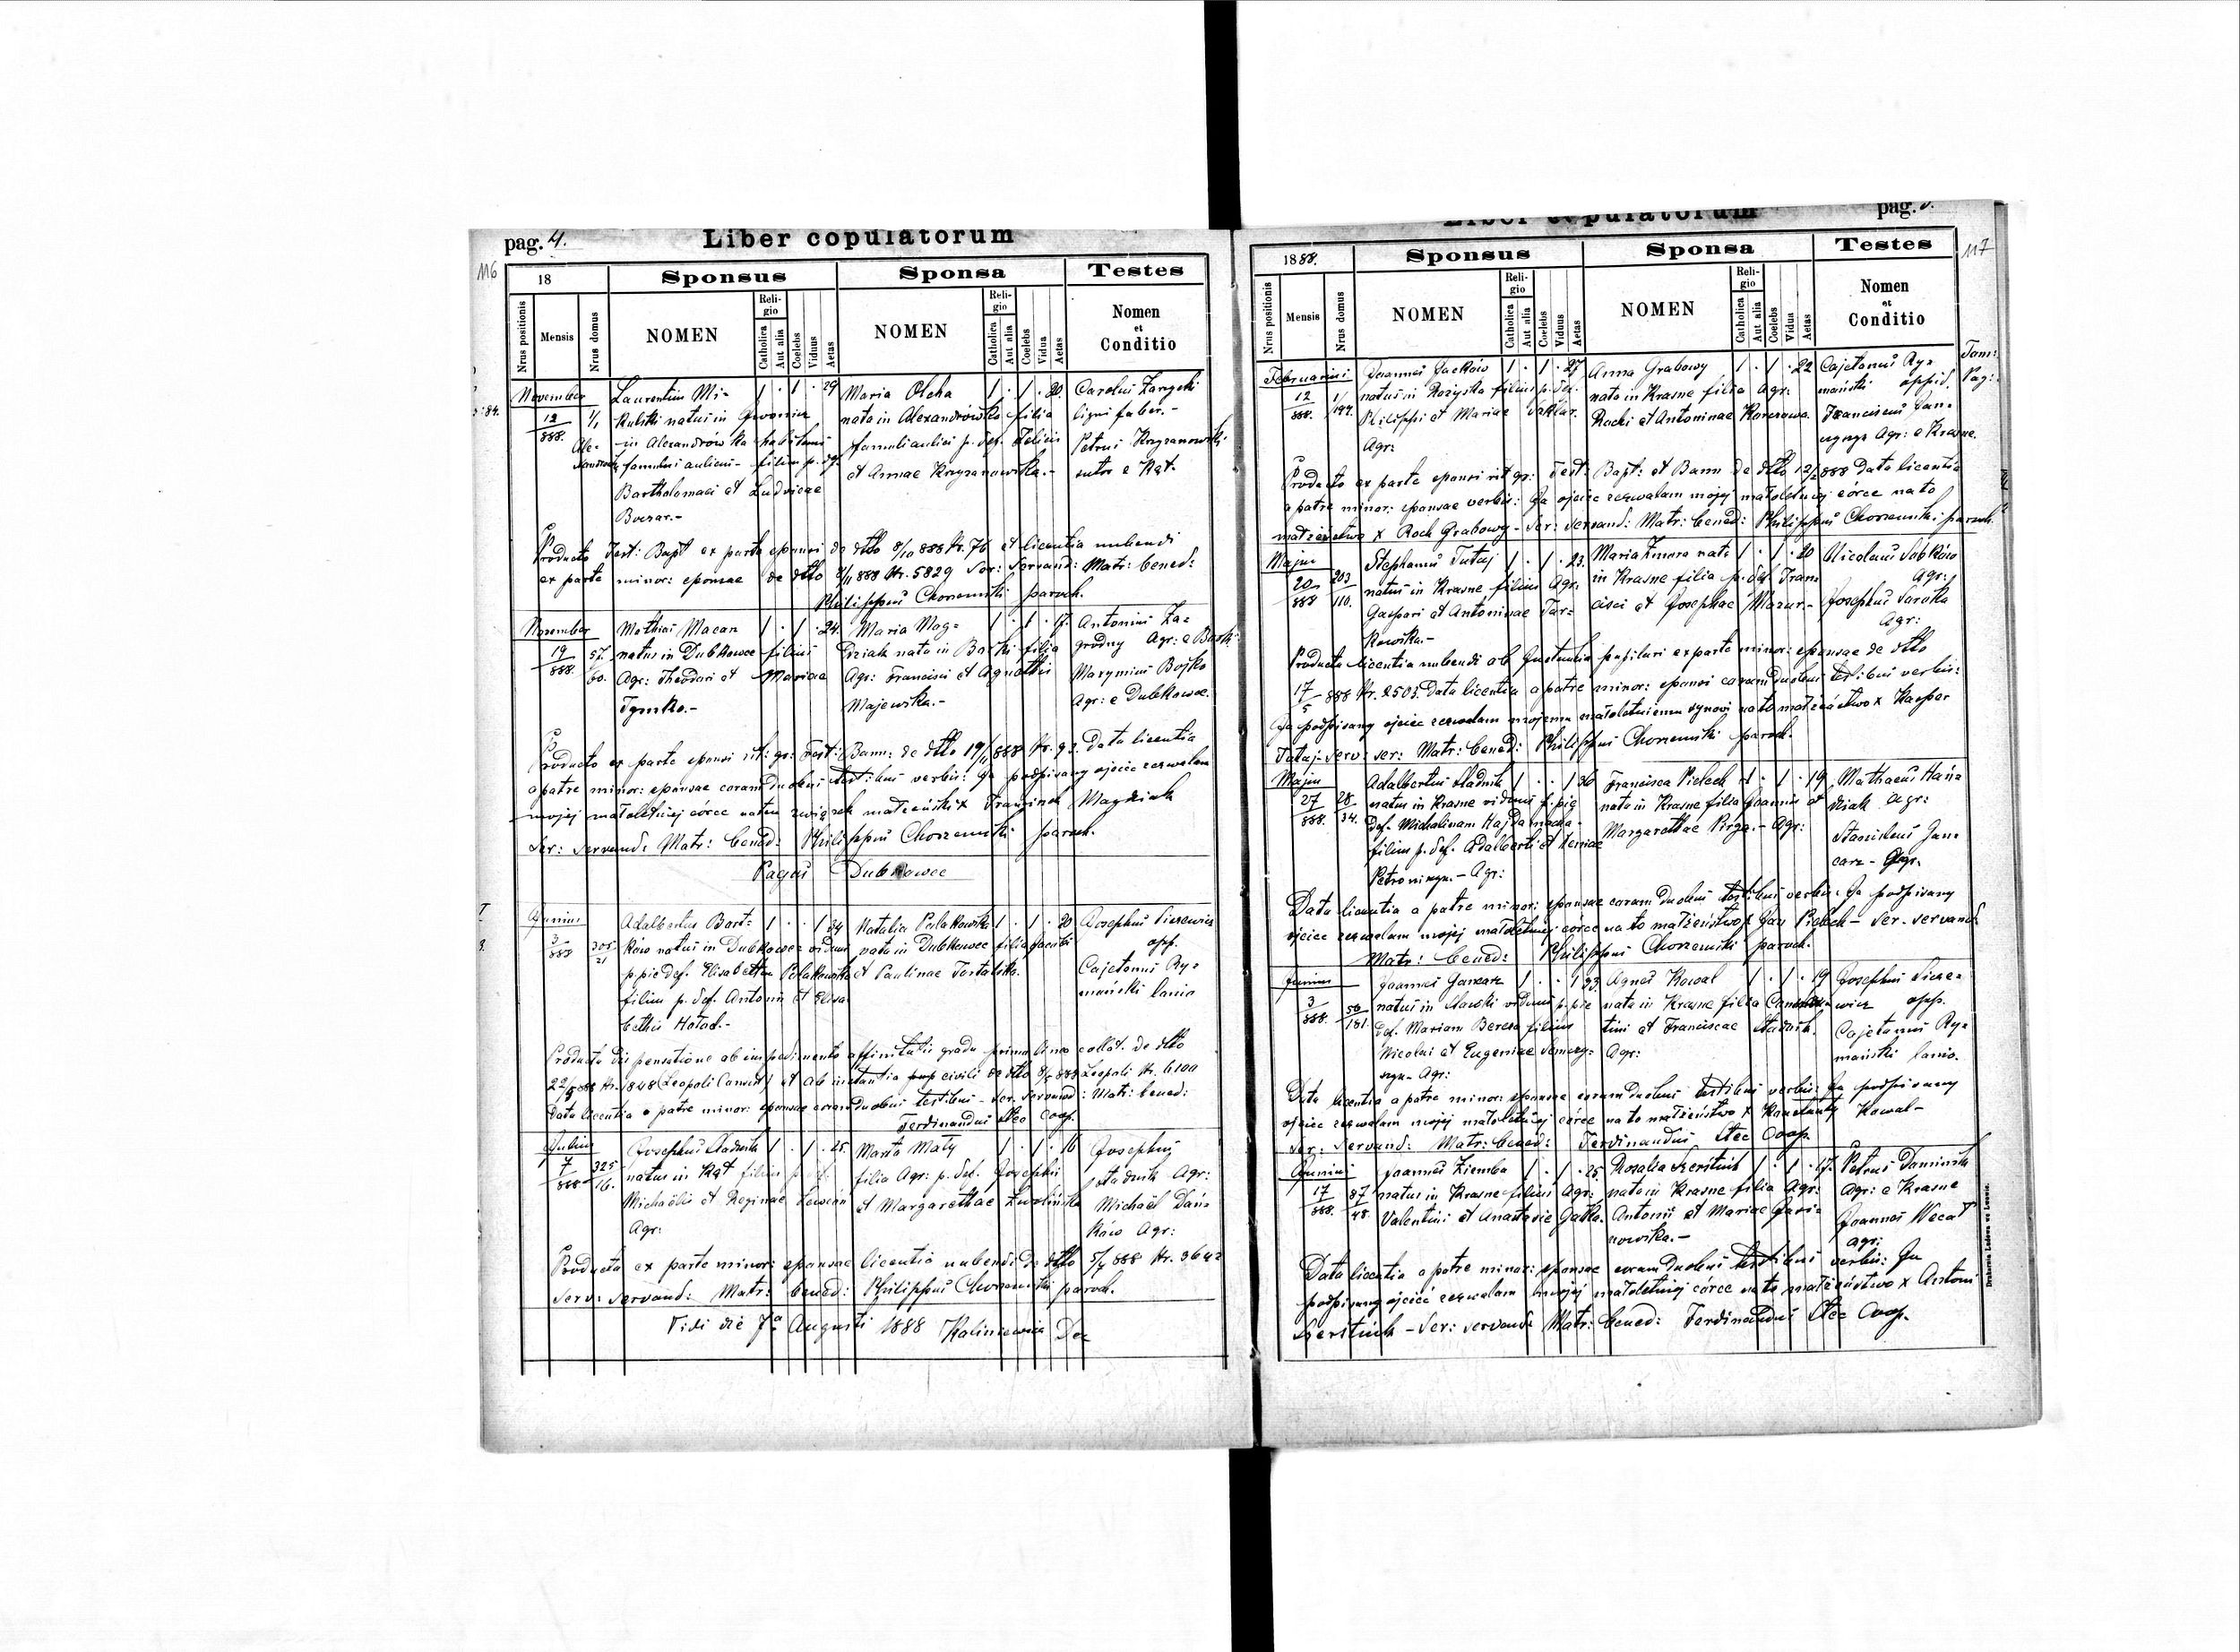 pag. 4.
Liber copulatorum
116
18
Sponsus
Sponsa
Testes
Nrus positionis
Mensis
Nrus domus
NOMEN
Religio
Catholica
Aut alia
Coelebs
Viduus
Aetas
NOMEN
Religio
Catholica
Aut alia
Coelebs
Vidua
Aetas
Nomen et Conditio
November Laurentius Mi- 1 · 1 · 29 Maria Olcha 1 · 1 · 20. Carolus
12/888. 1/1 natus in nata in Alexandrówka filia ligni faber.-
in Alexandrówka habitans famuli aulici p. def. Petrus Krzyzanowski
famulus aulicus - filius p. def. et Annae Krzyzanowska.- sutor e Kąt.
Bartholomaei et Ludvicae
Producto Test: Bapt ex parte sponsi de dtto 8/10 888 Nr. 76 et licentia nubendi
ex parte minor: sponsae de dtto 8/11 888 Nr. 5829 Ser: Servand: Matr: bened:
Philippus Chorzemski paroch.
November Mathias Macan 1 · 1 · 24. Maria Mog- 1 · 1 · 17. Antonius Za-
19/888. 57/60. natus in Dubkowce filius dziak nata in Borki filia grodny Agr: e Borki
Agr: Theodori et Mariae Agr: Francisci et Agnethis Maxymius Bojko
Tymko.- Majewska.- Agr: e Dubkowce.
Producto ex parte sponsi rit: gr: Test: Bann: de dtto 19/11 888 Nr. 93. Data licentia
a patre minor: sponsae coram duobus testibus verbis: Ja podpisany ojciec zezwalam
mojej małoletniej córce na ten związek małżeński x Franciszek Magdziak
Ser: servand: Matr: bened: Philippus Chorzemski paroch.
Pagus Dubkowce
Junius Adalbertus Bart- 1 · · 1 34 Natalia Polakowska 1 · 1 · 20 Josephus Siczewicz
3/888 305/21 ków natus in Dubkowce viduus nata in Dubkowce filia Jacobi opp.
p. pie def. Elisabetham Polakowska et Paulinae Cajetanus Ry-
filius p. def. Antonii et Elisa- mański lanio
bethis Hołod.-
Producta dispensatione ab impedimento affinitatis gradu primo lineo collat. de dtto
22/5 888 Nr. 1848 Leopoli et ab instantia civili de dtto 8/5 888 Leopoli Nr. 6100
Data licentia a patre minor: sponsae coram duobus testibus - Ser. servand: Matr: bened:
Ferdinandus Stec Coop.
Julius Josephus Sładnik 1 · 1 · 25. Maria Mały 1 · 1 · 16 Josephus
7/888 325/16. natus in Kąt filius p. def. filia Agr: p. def. Josephi Agr:
Michaelis et Reginae et Margarethae Zwolińska Michael Dań-
Agr: ków Agr:
Producta ex parte minor: sponsae licentia nubendi de dtto 5/7 888 Nr. 3642
Serv: servand: Matr: bened: Philippus Chorzemski paroch.
Vidi die 7a Augusti 1888 Kaliniewicz Dec
Liber copulatorum
pag. 5.
117
1888.
Sponsus
Sponsa
Testes
Nrus positionis
Mensis
Nrus domus
NOMEN
Religio
Catholica
Aut alia
Coelebs
Viduus
Aetas
NOMEN
Religio
Catholica
Aut alia
Coelebs
Vidua
Aetas
Nomen et Conditio
Februarius Joannes Jacków 1 · 1 · 27 Anna Grabowy 1 · 1 · 22 Cajetanus Ry-
12/888. 1/194. natus in Rożyska filius p. def. nata in Krasne filia Agr: mański oppid.
Philippi et Mariae Rochi et Antoninae Karczowa. Franciscus Jan-
Agr: Agr: e Krasne.
Producto ex parte sponsi rit gr: Test: Bapt: et Bann de dtto 12/2 888 Data licentia
a patre minor: sponsae verbis: Ja ojciec zezwalam mojej małoletniej córce na to
małżeństwo x Roch Grabowy - Ser: servand: Matr: bened: Philippus Chorzemski paroch.
Majus Stephanus Tutaj 1 · 1 · 23. Maria Zmora nata 1 · 1 · 20 Nicolaus Sobków
20/888 203/110. natus in Krasne filius Agr: in Krasne filia p. def. Fran- Agr:
Gaspari et Antoninae Tar- cisci et Josephae Mazur.- Josephus Saraka
kowska.- Agr:
Producta licentia nubendi ab Instantia pupilari ex parte minor: sponsae de dtto
17/5 888 Nr. 2503. Data licentia a patre minor: sponsi coram duobus testibus verbis:
Ja podpisany ojciec zezwalam mojemu małoletniemu synowi na to małżeństwo x Kasper
Tutaj - Serv: ser: Matr: bened: Philippus Chorzemski paroch.
Majus Adalbertus Sładnik 1 · · 1 36 Francisca Pielech 1 · 1 · 19 Mathaeus Hań-
27/888. 28/34. natus in Krasne viduus p. pie nata in Krasne filia Joannis et dziak Agr:
def. Michalinam Hajdamacha. Margarethae Pirga.- Agr: Stanislaus Jan-
filius p. def. Adalberti et Xeniae carz - Agr.
Agr:
Data licentia a patre minor: sponsae coram duobus testibus verbis: Ja podpisany
ojciec zezwalam mojej małoletniej córce na to małżeństwo x Jan Pielech - Ser. servand:
Matr: bened: Philippus Chorzemski paroch.
Junius Joannes Gancarz 1 · · 1 33. Agnes Kowal 1 · 1 · 19 Josephus Sicze-
3/888. 50/181. natus in viduus p. pie nata in Krasne filia Constan- wicz opp.
def. Mariam Bereza filius tini et Franciscae Sładnik. Cajetanus Ry-
Nicolai et Eugeniae Agr: mański lanio.
Agr:
Data licentia a patre minor: sponsae coram duobus testibus verbis: Ja podpisany
ojciec zezwalam mojej małoletniej córce na to małżeństwo x Konstanty Kowal -
Ser: servand: Matr: bened: Ferdinandus Stec Coop.
Junius Joannes Ziemba 1 · 1 · 25. Rosalia Szerstiuk 1 · 1 · 17. Petrus
17/888. 87/48. natus in Krasne filius Agr: nata in Krasne filia Agr: Agr: e Krasne
Valentini et Anastasie Gałka. Antonii et Mariae Joannes
nowska.- Agr:
Data licentia a patre minor: sponsae coram duobus testibus verbis: Ja
podpisany ojciec zezwalam mojej małoletniej córce na to małżeństwo x Antoni
Szerstiuk - Ser: servand: Matr: bened: Ferdinandus Stec Coop.